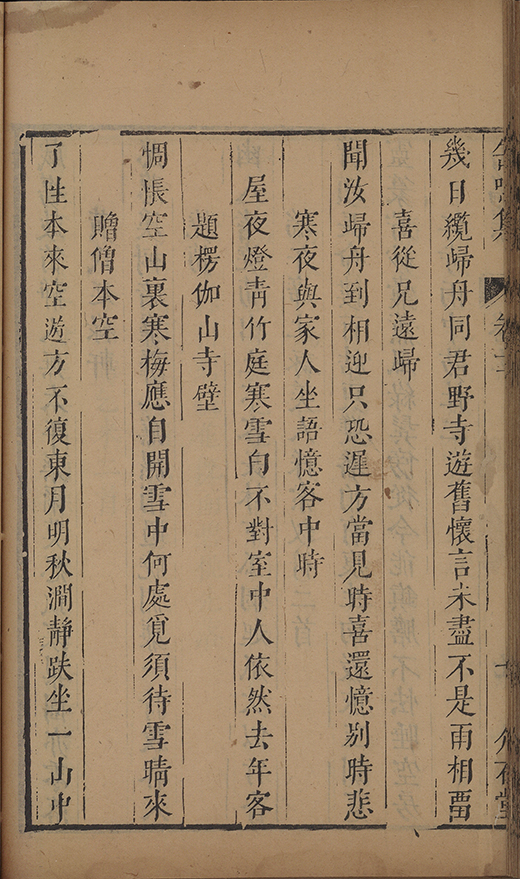 幾日纜歸舟同君野寺遊舊懷言未盡不是雨相畱
喜從兄遠歸
聞汝歸舟到相迎只恐遲方當見時喜還憶别時悲
寒夜與家人坐語憶客中時
屋夜燈青竹庭寒雪白不對室中人依然去年客
題楞伽山寺壁
惆悵空山裏寒梅應自開雪中何處覓須待雪晴來
贈僧本空
了性本來空遊方不復東月明秋澗靜趺坐一山中